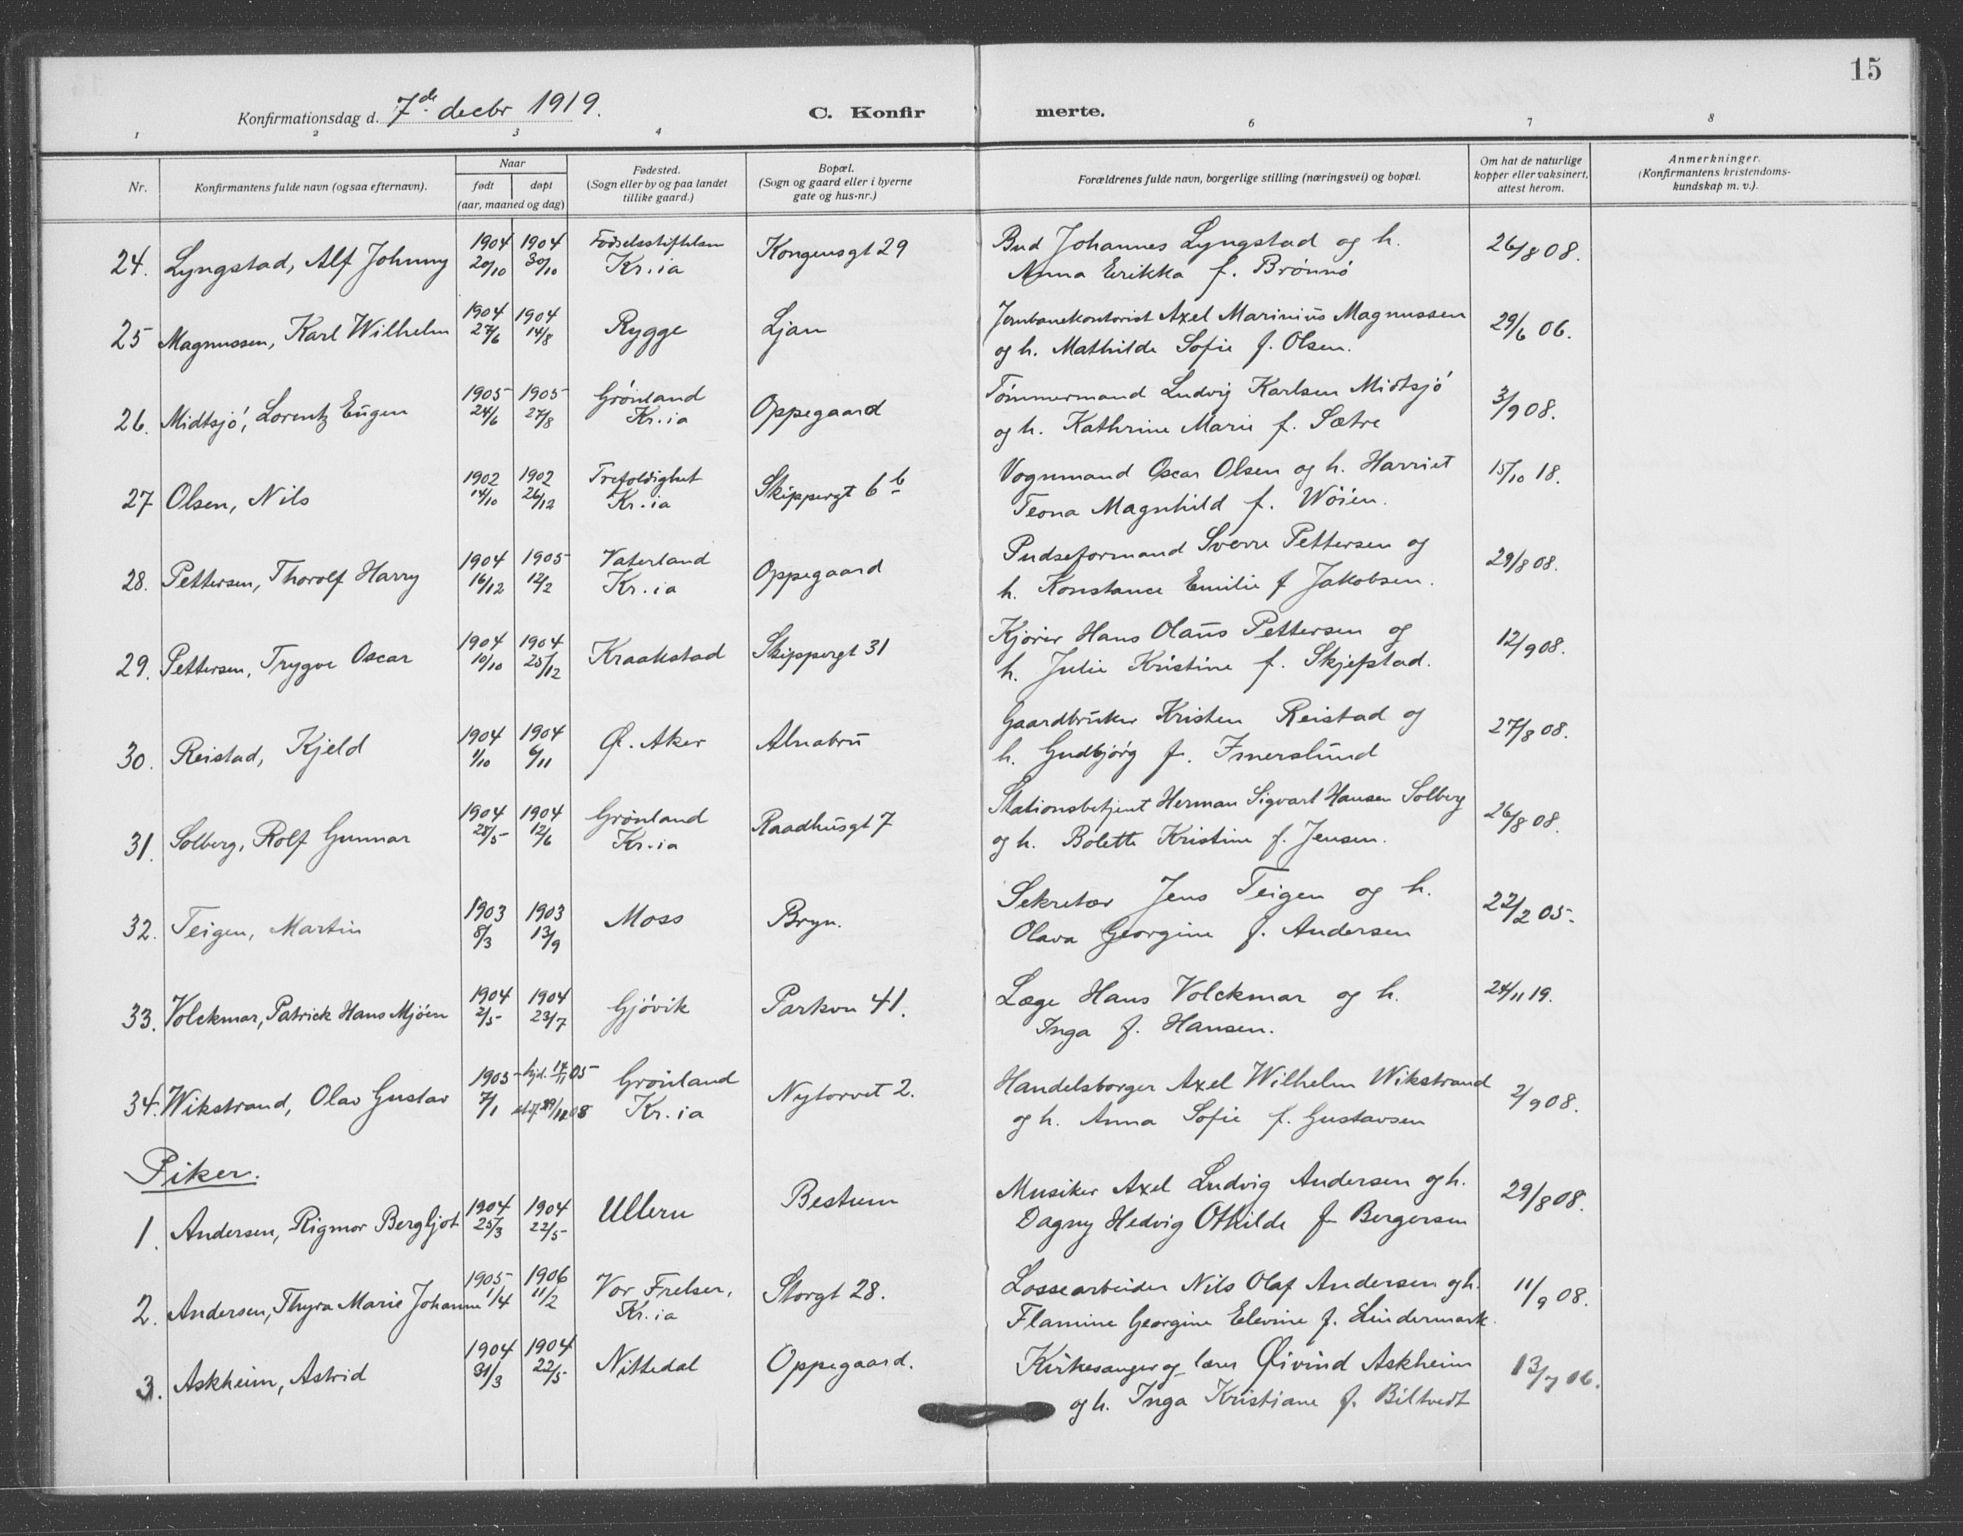 15
Konfirmationsdag d. 7de decbr 1919.
C. Konfir merte.
1 2 3 4 6 7 8
Nr.
Konfirmantens fulde navn (ogsaa efternavn).
Naar
født døpt
(aar, maaned og dag)
Fødested.
(Sogn eller by og paa landet
tillike gaard.)
Bopæl.
(Sogn og gaard eller i byerne
gate og hus-nr.)
Forældrenes fulde navn, borgerlige stilling (næringsvei) og bopæl.
Om hat de naturlige
kopper eller vaksinert,
attest herom.
Anmerkninger.
(Konfirmantens kristendoms-
kundskap m. v.)
24. Lyngstad, Alf Johnny 1904 20/10 1904 30/10 Fødselsstiftelsen Kr.ia Kongensgt 29 Bud Johannes Lyngstad og h. 26/8 08.
Anna Erikka f. Brønnø
25 Magnussen, Karl Wilhelm 1904 27/6 1904 14/8 Rygge Ljan Jernbanekontorist Axel Marinius Magnussen 29/6 06.
og h. Mathilde Sofie f. Olsen.
26. Midtsjø, Lorentz Eugen 1905 24/6 1905 27/8 Grønland Kr.ia Oppegaard Tømmermand Ludvig Karlsen Midtsjø 3/9 08.
og h. Kathrine Marie f. Sætre
27 Olsen, Nils 1902 14/10 1902 26/12 Trefoldighet Kr.ia Skippergt 6 b Vognmand Oscar Olsen og h. Harriet 15/10 18.
Teona Magnhild f. Wøien.
28. Pettersen, Thorolf Harry 1904 16/12 1905 12/2 Vaterland Kr.ia Oppegaard Pudseformand Sverre Pettersen og 29/8 08.
h. Konstance Emilie f Jakobsen.
29. Pettersen, Trygve Oscar 1904 10/10 1904 25/12 Kraakstad Skippergt 31 Kjører Hans Olaus Pettersen og 12/9 08.
h. Julie Kristine f. Skjefstad.
30. Reistad, Kjeld 1904 1/10 1904 6/11 Ø. Aker Alnabru Gaardbruker Kristen Reistad og 27/8 08.
h. Gudbjørg f. Imerslund
31. Solberg, Rolf Gunnar 1904 28/5 1904 12/6 Grønland Kr.ia Raadhusgt 7 Stationsbetjent Herman Sigvart Hansen Solberg 26/8 08.
og h. Bolette Kristine f. Jensen.
32. Teigen, Martin 1903 8/3 1903 13/9 Moss Bryn. Sekretær Jens Teigen og h. 22/2 05.
Olava Georgine f. Andersen
33. Volckmar, Patrick Hans Mjøen 1904 2/5 1904 23/7 Gjøvik Parkvn 41. Læge Hans Volckmar og h. 24/11 19.
Inga f. Hansen.
34. Wikstrand, Olav Gustav 1905 7/1 hjd. 17/11 05 Grønland Kr.ia Nytorvet 2. Handelsborger Axel Wilhelm Wikstrand 2/9 08.
og h. Anna Sofie f. Gustavsen
Piker.
1. Andersen, Rigmor Bergljot 1904 25/3 1904 22/5 Ullern Bestum Musiker Axel Ludvig Andersen og h. 29/8 08.
Dagny Hedvig Othilde f Bergersen
2. Andersen, Thyra Marie Johanne 1905 1/4 1906 11/2 Vor Frelser, Kr.ia Storgt 28. Lossearbeider Nils Olaf Andersen og h. 11/9 08.
Flamine Georgine Elevine f. Lindermark.
3. Askheim, Astrid 1904 31/3 1904 22/5 Nittedal Oppegaard. Kirkesanger og lærer Øivind Askheim 13/7 06.
og h. Inga Kristiane f. Biltvedt